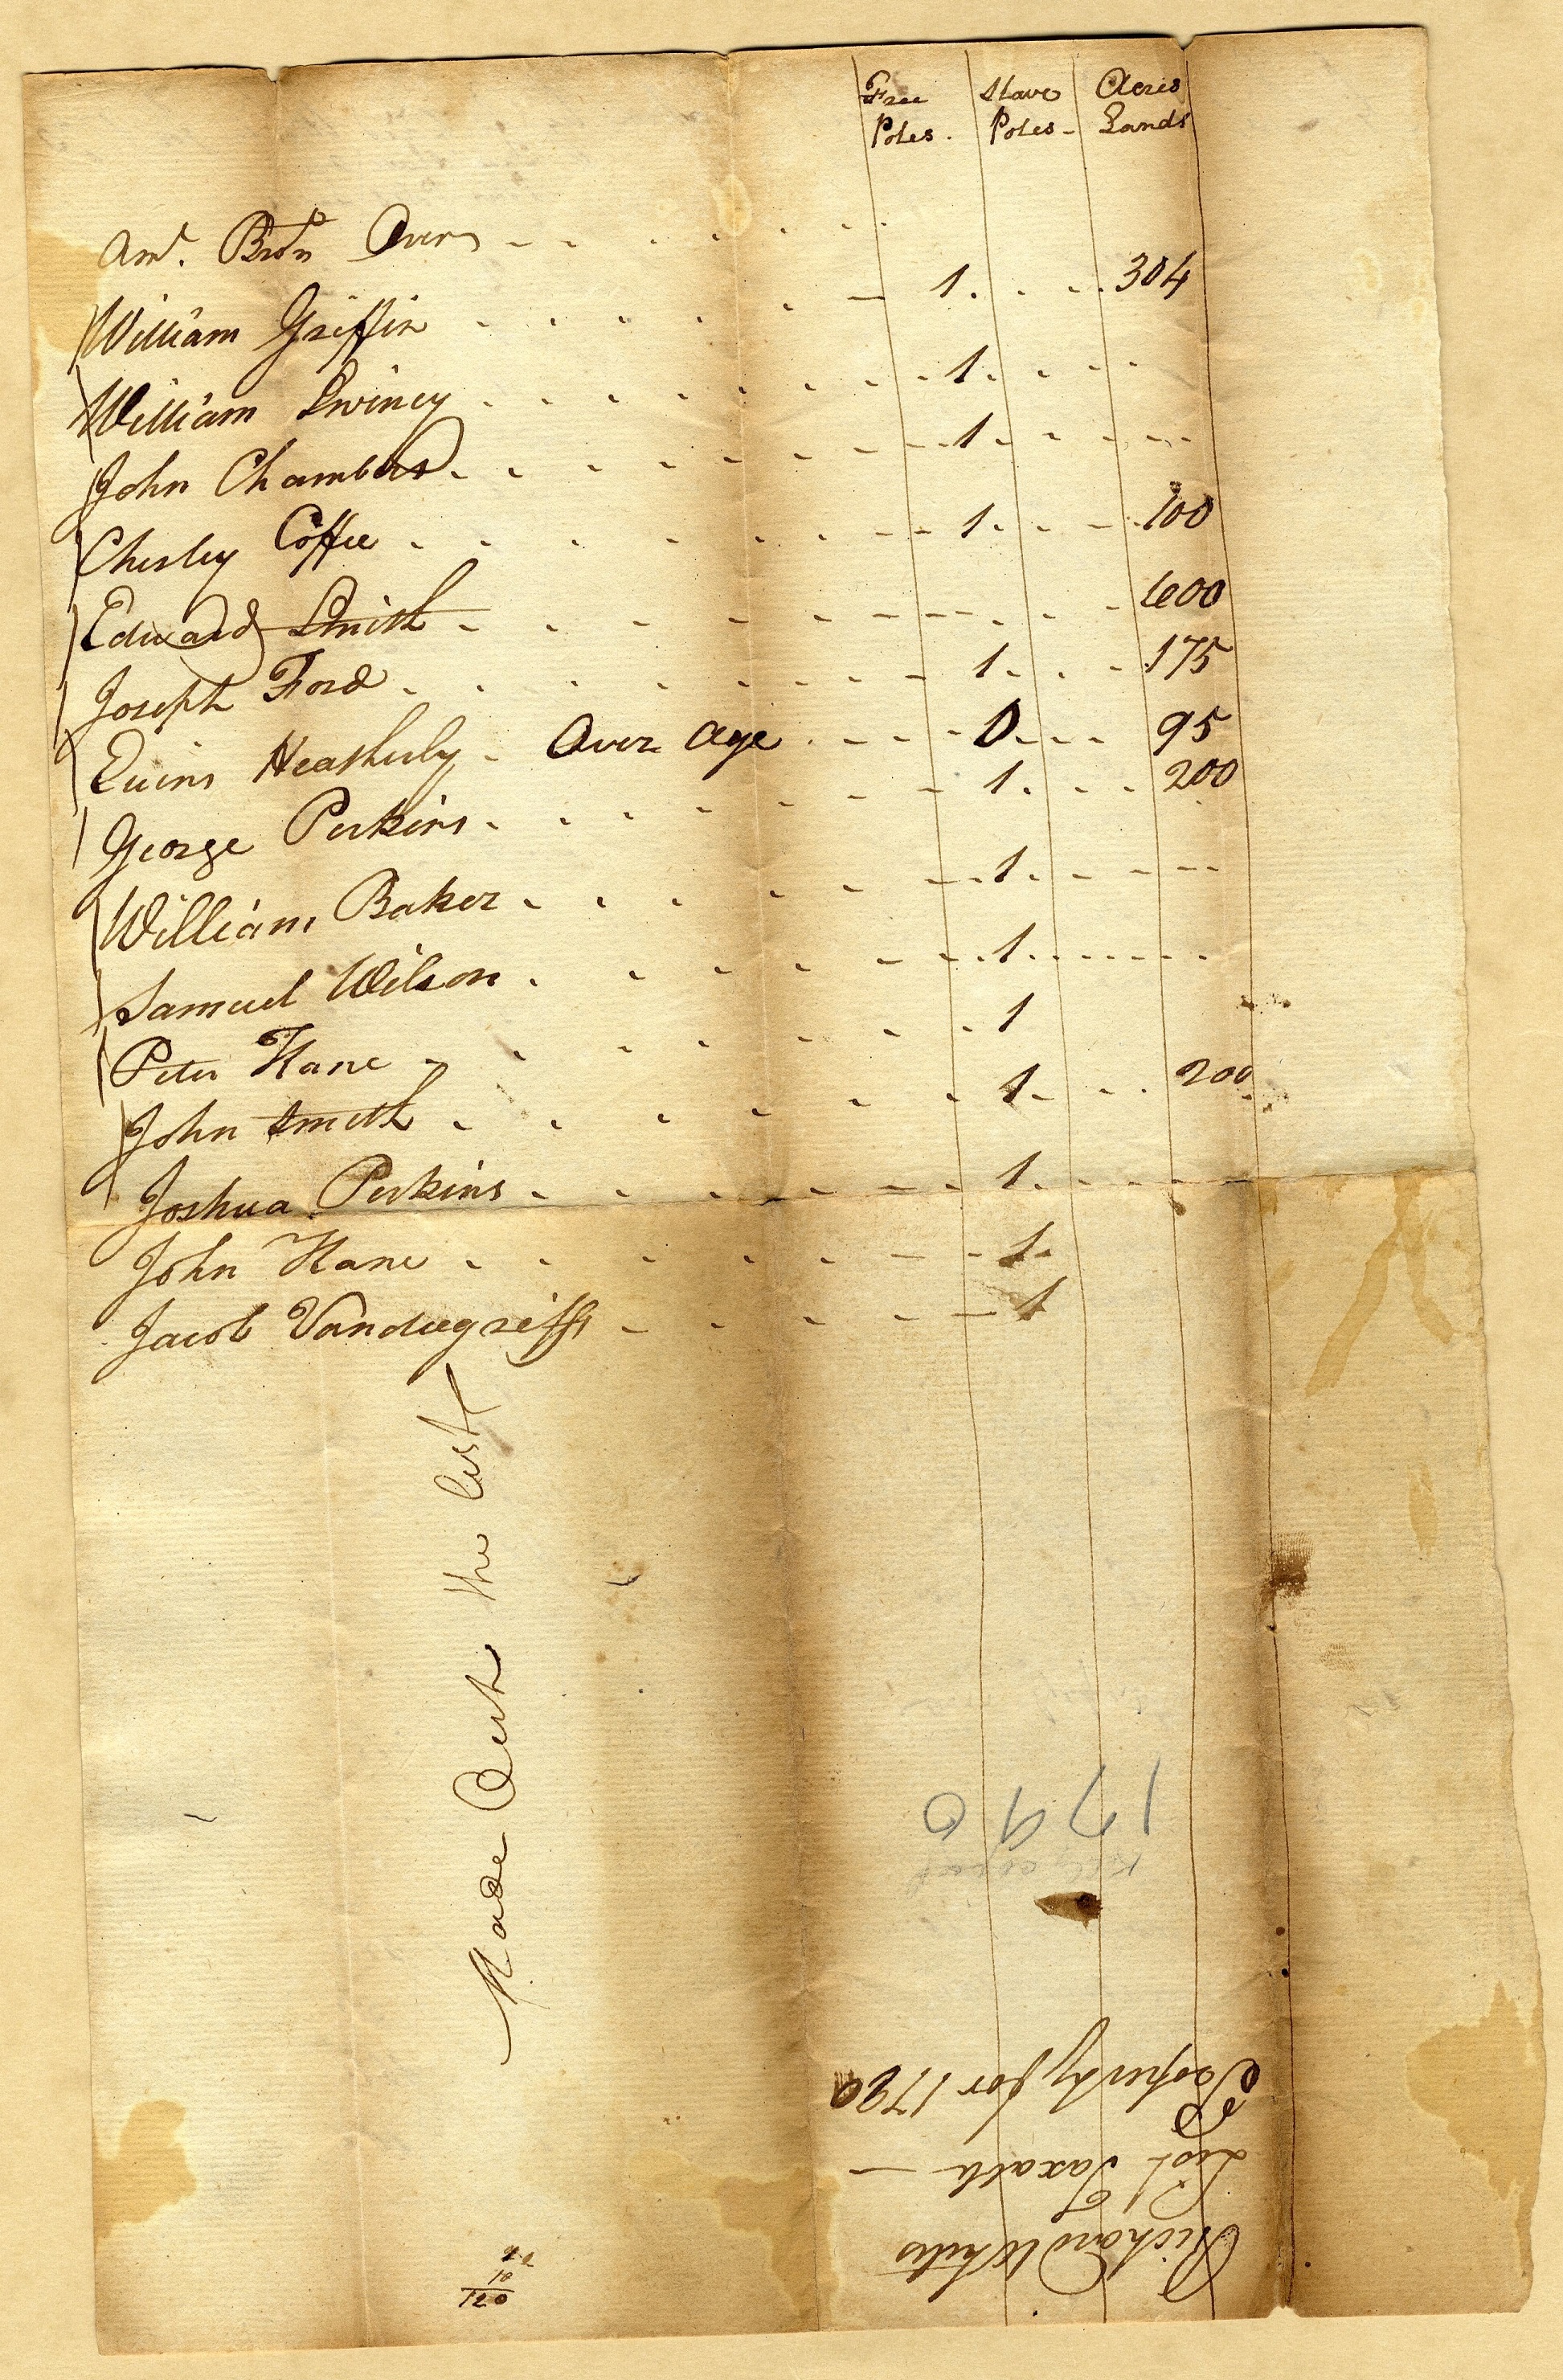 Free Poles. Slave Poles- Acres Lands
Amt. Brot. Over
William Griffin 1 304
William Swiney 1
John Chambers 1
Chesley Coffee 1 100
Edward Smith 600
Joseph Ford 1 175
Evins Heatherly - Over Age 0 95
George Perkins 1 200
William Baker 1
Samuel Wilson 1
Peter Kane 1
John Smith 1 200
Joshua Perkins 1
John Kane 1
Jacob Vandegriff 1
Made Out the list
1790
Richard Whites
List Taxable
Property for 1790
10
120